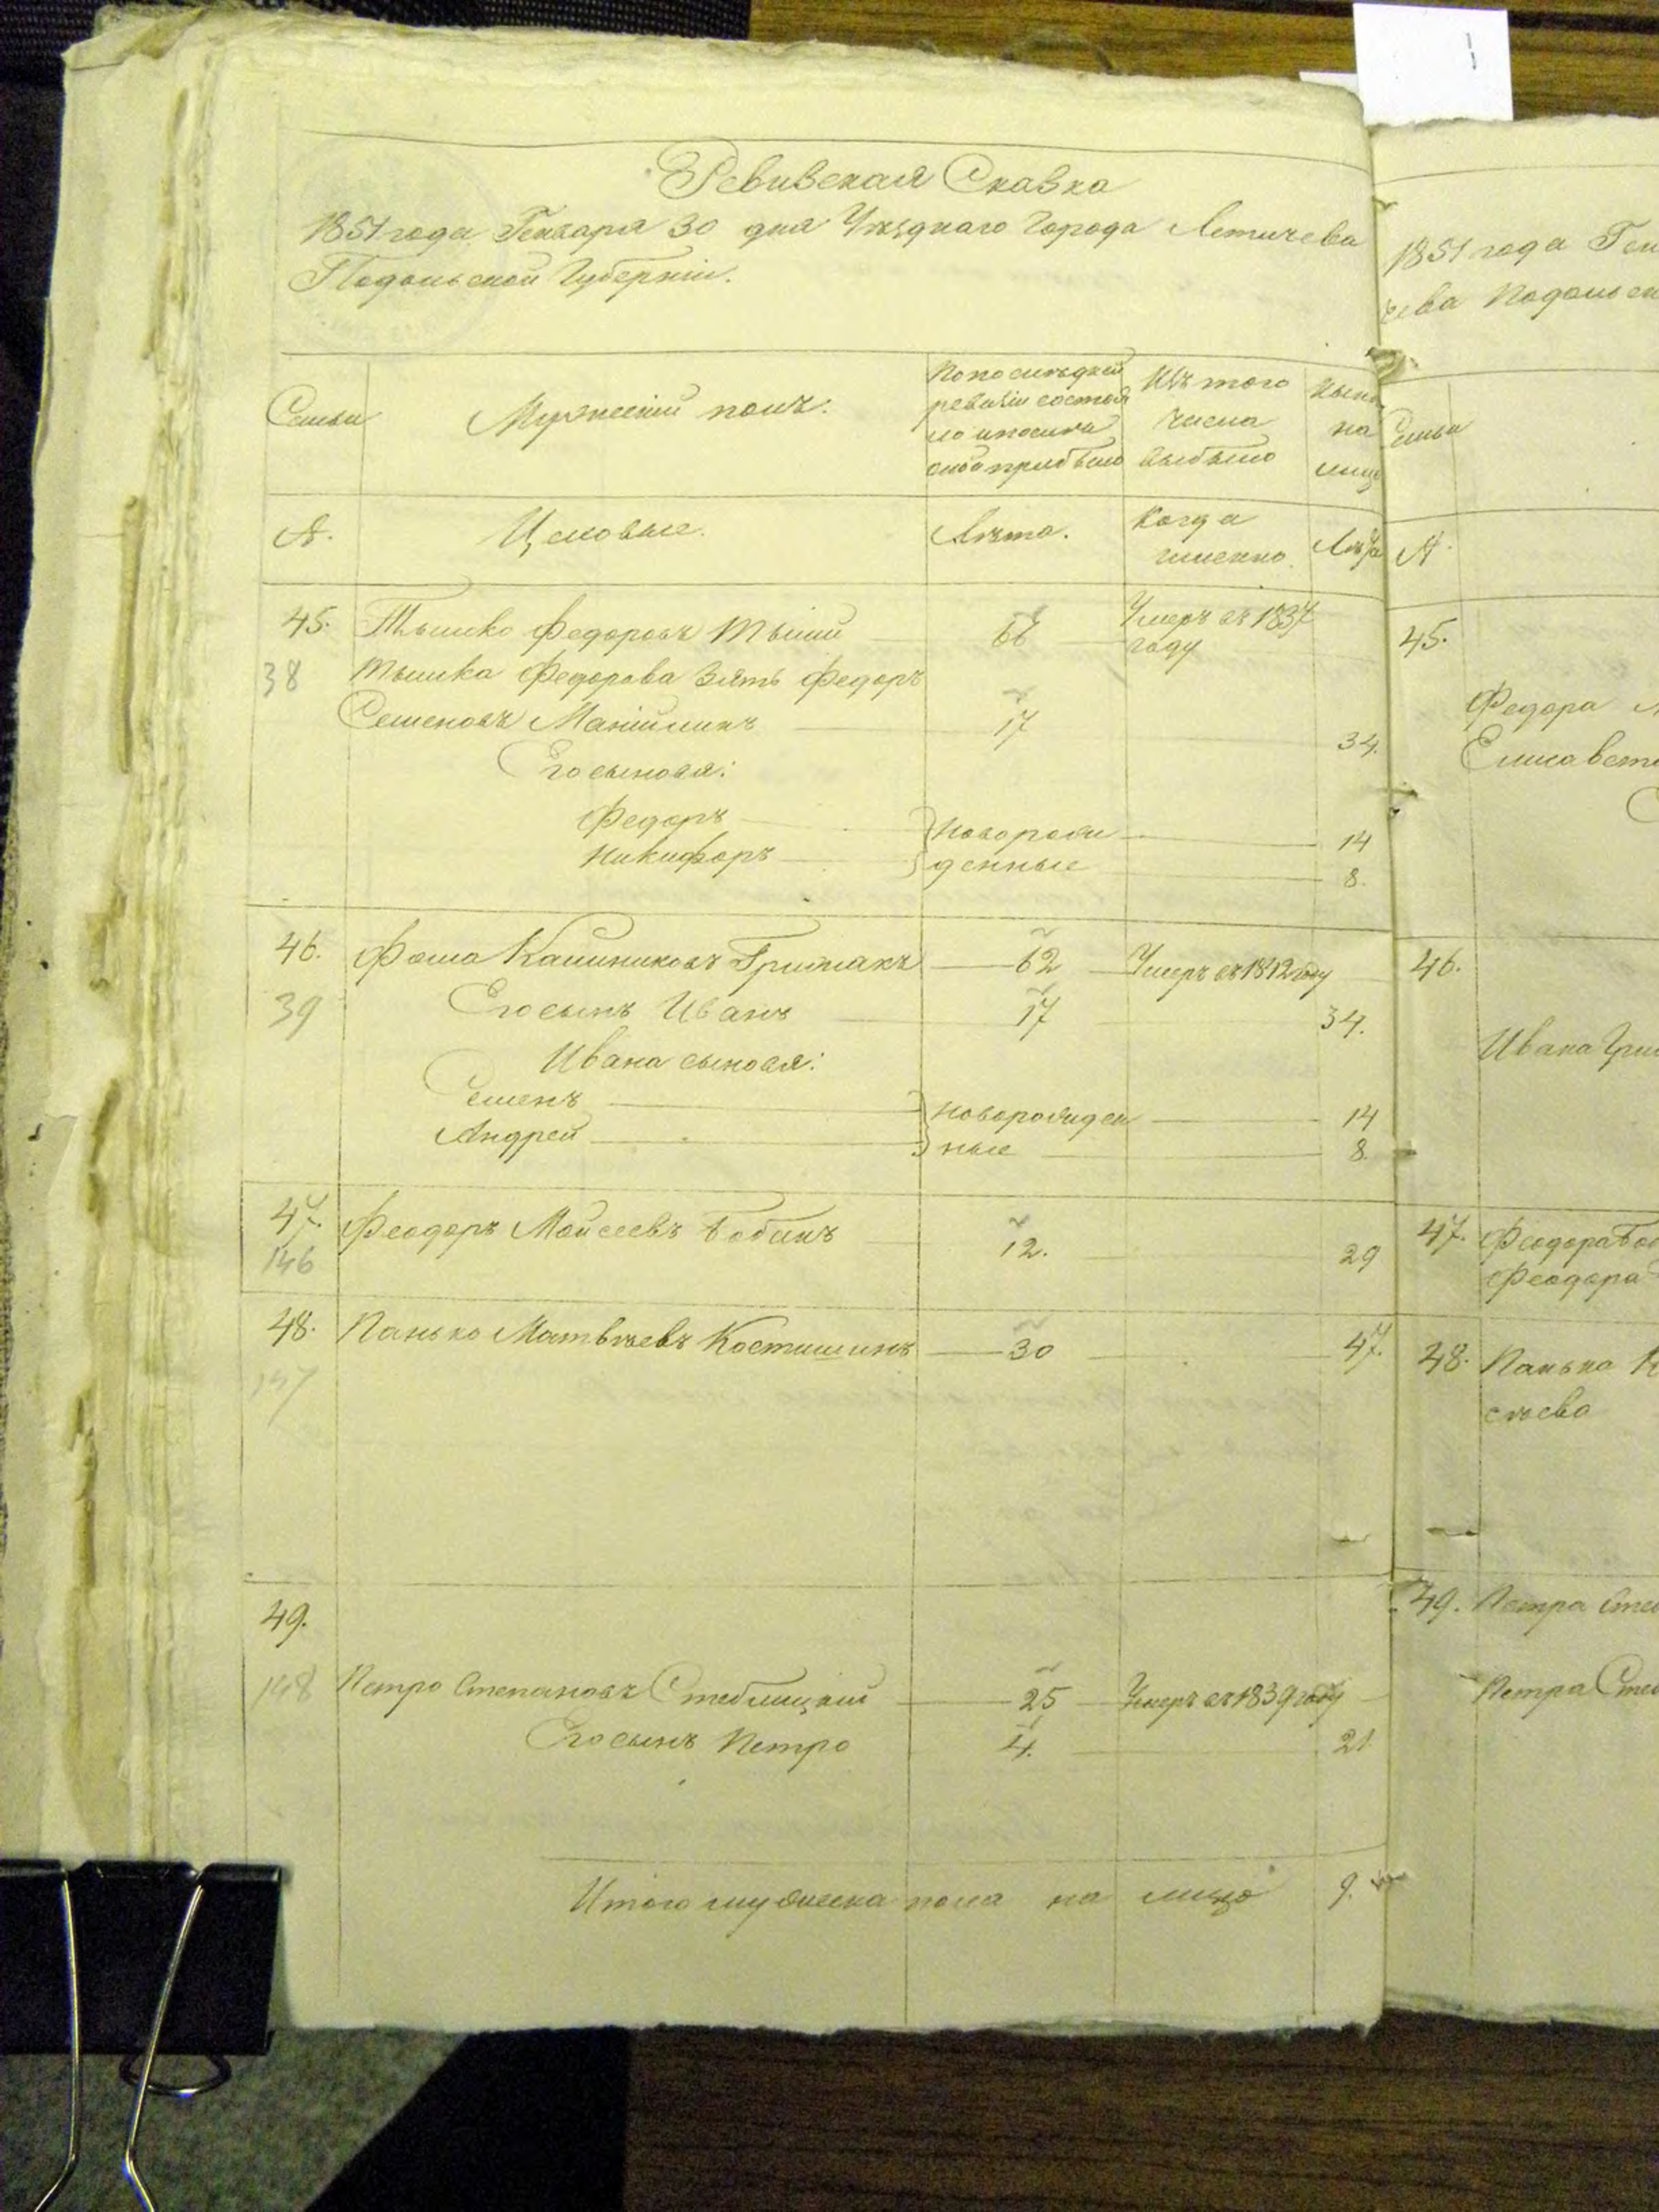 Ревизская Сказка
1851 года Генваря 30 дня Уѣзднаго Города Летичева
Подольской Губерніи.
Семьи
Мужескій полъ.
По послѣдней
ревизіи состоя
ло и послѣ
онаго прибыло
Изъ того
числа
выбыло
Нынѣ
на
лицо
№.
Лѣта.
Когда
именно.
Лѣта
45.
Тышко Федоровъ
66
Умеръ въ 1837
году
38
Тышка Федорова Зять Федоръ
Семеновъ
17
34.
Его сыновья:
Федоръ
Новорож
14
Никифоръ
денные
8.
46.
Фома Калиниковъ Гримакъ
62
Умеръ въ 1842 году
39
Его сынъ Иванъ
17
34.
Ивана сыновья:
Семенъ
новорожден
14
Андрей
ные
8.
47.
Феодоръ Моисеевъ
12.
29
146
48.
Панько Матвѣевъ Костишинъ
30
47.
147
49.
148
Петро Степановъ Стеблицкій
25
Умеръ въ 1839 году
Его сынъ Петро
4.
21
Итого мужеска пола на лицо
9.
1851 года Ген
чева Подольск
Семьи
№.
45.
Федора
Елисавета
46.
Ивана Грим
47.
Феодора
Феодора
48.
Панька К
сѣева
49.
Петра Стеб
Петра Стеб